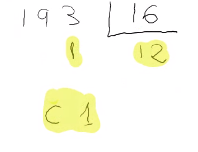 193 16
1 12
C1